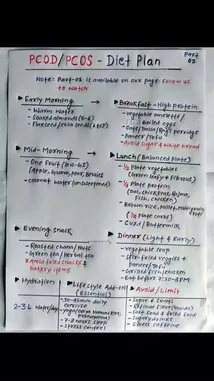 PCOD/PCOS - Diet Plan
Part 02
Note: Part-02 is available on our page. Follow us to watch
Early Morning
- Warm water
- Soaked almonds (5-6)
- Flaxseed/chia seeds (1 tsp)
Breakfast - High protein
- vegetable omelette/ boiled eggs
- Oats/ porridge
- Paneer/tofu
Avoid sugar & white bread
Mid-Morning
- One Fruit (low-GI)
(Apple, Guava, pear, Berries)
- coconut water (unsweetened)
Lunch (Balanced Plate)
- ½ Plate vegetables
(Green leafy + fibrous)
- ¼ Plate protein
(Dal, chickpeas, Rajma, Fish, chicken)
- Brown rice, millet, multigrain
(¼ Plate carbs)
- Curd/Buttermilk
Evening snack
- Roasted chana/nuts
- Green tea/Herbal tea
Avoid fried snacks & bakery items
Dinner (Light & Early)
- vegetable soup
- Stir-fried veggies + paneer/tofu
- Grilled fish/chicken
- Eat before 7:30-8PM
Hydration
2-3 L water/day
Life style Add-on (Essential)
- 30-45 min daily exercise
- 7-8
- Stress control
Avoid/Limit
- Sugar & sweets
- Refined flour (maida)
- Fast food & fried food
- Excess caffeine